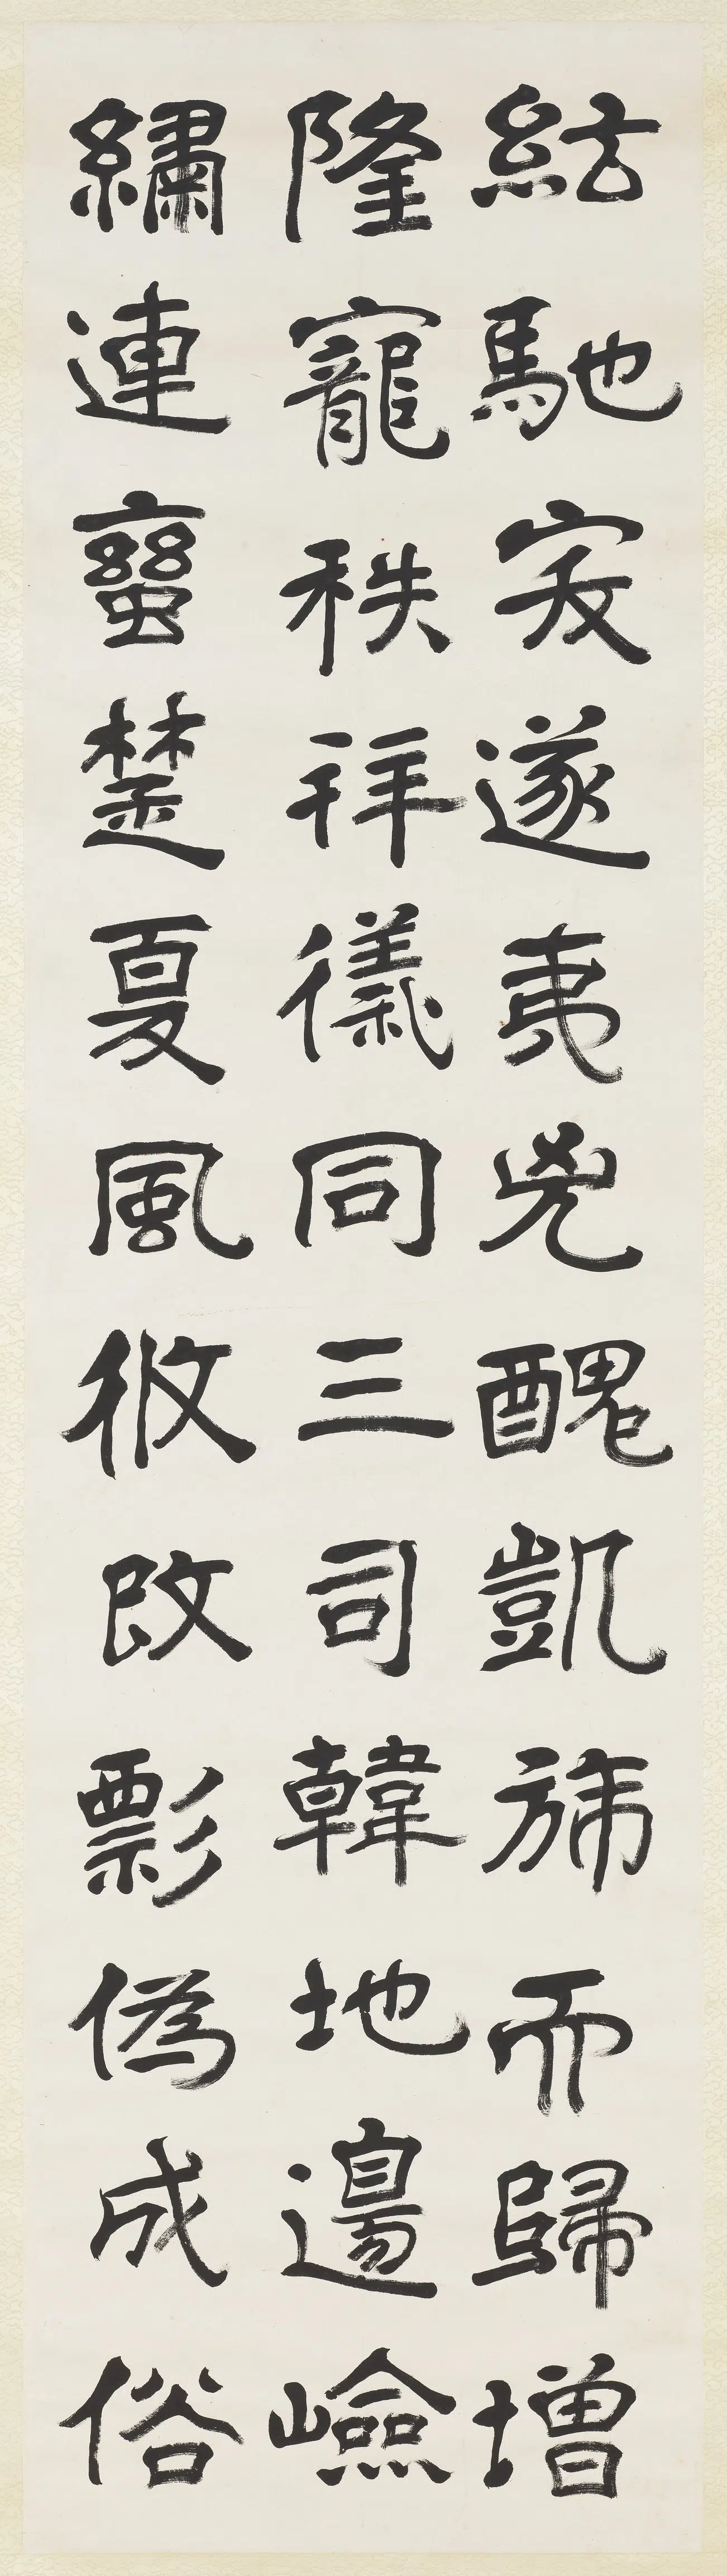 紘馳突遂夷兇醜凱旆而歸增
隆寵秩拜儀同三司韓地邊嶮
繡連蠻楚夏風攸改彯偽成俗